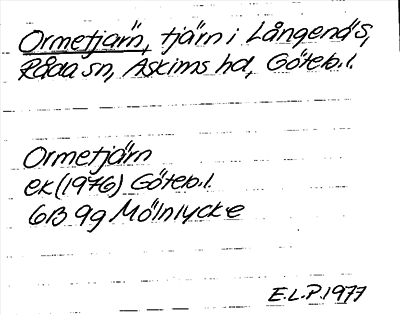 Ormetjärn, tjärn i Långenäs,
Råda sn, Askims hd, Göteb.l.
Ormetjärn
ek (1976) Göteb.l.
6B 9g Mölnlycke
E.L.P.1977